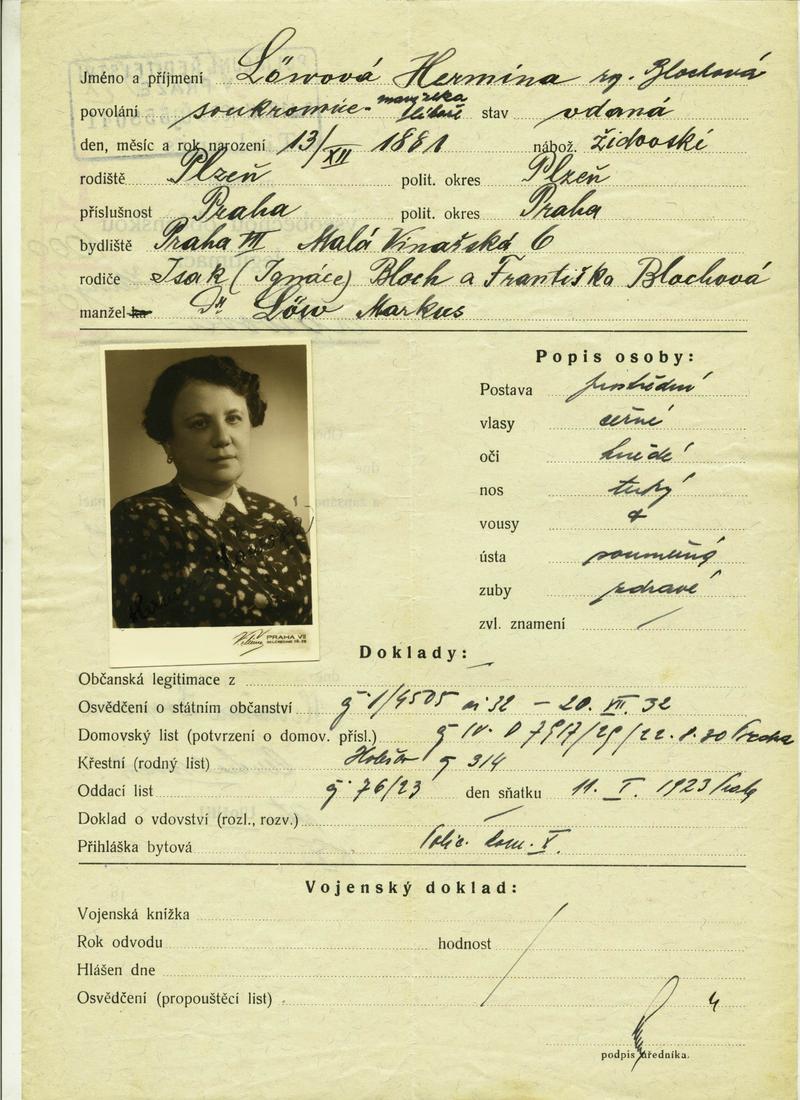 Jméno a příjmení Löwová Hermina rz. Blochová
povolání soukromnice - manželka
stav vdaná
den, měsíc a rok narození 13/XII 1881 nábož. židovské
rodiště Plzeň polit. okres Plzeň
příslušnost Praha polit. okres Praha
bydliště Praha III Malá Vinařská 6
rodiče Isak (Ignáce) Bloch a Františka Blochová
manžel-ka Dr Löw Markus
Popis osoby:
Postava prostřední
vlasy černé
oči hnědé
nos tupý
vousy
ústa souměrná
zuby zdravé
zvl. znamení /
PRAHA VII
Doklady:
Občanská legitimace z
Osvědčení o státním občanství - 20. VII. 32
Domovský list (potvrzení o domov. přísl.)
Křestní (rodný list) 314
Oddací list č. 76/23 den sňatku 11. I. 1923
Doklad o vdovství (rozl., rozv.) —
Přihláška bytová
Vojenský doklad:
Vojenská knížka
Rok odvodu hodnost
Hlášen dne
Osvědčení (propouštěcí list)
podpis úředníka.